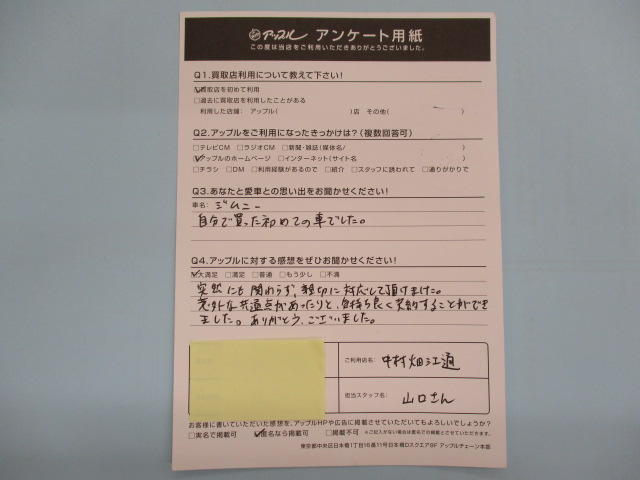 アップル アンケート用紙
この度は当店をご利用いただきありがとうございました。
Q1.買取店利用について教えて下さい！
☑買取店を初めて利用
□過去に買取店を利用したことがある
利用した店舗： アップル（ ）店 その他（ ）
Q2.アップルをご利用になったきっかけは？（複数回答可）
□テレビCM □ラジオCM □新聞・雑誌（媒体名/ ）
☑アップルのホームページ □インターネット（サイト名 ）
□チラシ □DM □利用経験があるので □紹介 □スタッフに誘われて □通りがかりで
Q3.あなたと愛車との思い出をお聞かせください！
車名： ジムニー
自分で買った初めての車でした。
Q4.アップルに対する感想をぜひお聞かせください！
☑大満足 □満足 □普通 □もう少し □不満
突然にも関わらず、親切に対応して頂けました。
意外な共通点があったりと、気持ち良く契約することができ
ました。ありがとうございました。
ご利用店名： 中村畑江通
担当スタッフ名： 山口さん
お客様に書いていただいた感想を、アップルHPや広告に掲載させていただいてもよろしいでしょうか？
□実名で掲載可 ☑匿名なら掲載可 □掲載不可 ※ご記入がない場合は匿名での掲載とさせていただきます。
東京都中央区日本橋1丁目16番11号日本橋Dスクエア9F アップルチェーン本部